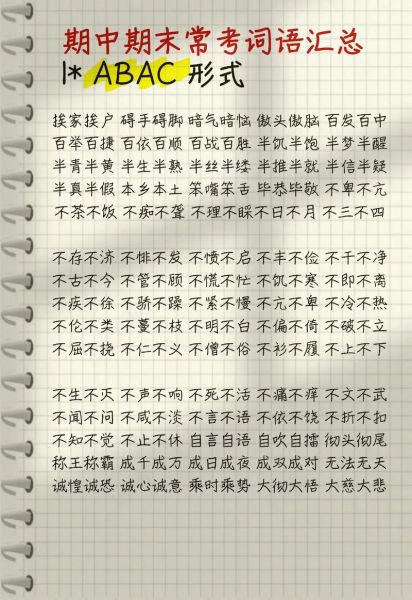 期中期末常考词语汇总
1* ABAC 形式
挨家挨户 碍手碍脚 暗气暗恼 傲头傲脑 百发百中
百举百捷 百依百顺 百战百胜 半饥半饱 半梦半醒
半青半黄 半生半熟 半丝半缕 半推半就 半信半疑
半真半假 本乡本土 笨嘴笨舌 毕恭毕敬 不卑不亢
不茶不饭 不痴不聋 不理不睬 不日不月 不三不四
不存不济 不悱不发 不愤不启 不丰不俭 不干不净
不古不今 不管不顾 不慌不忙 不饥不寒 不即不离
不疾不徐 不骄不躁 不紧不慢 不亢不卑 不冷不热
不伦不类 不蔓不枝 不明不白 不偏不倚 不破不立
不屈不挠 不仁不义 不僧不俗 不衫不履 不上不下
不生不灭 不声不响 不死不活 不痛不痒 不文不武
不闻不问 不咸不淡 不言不语 不依不饶 不折不扣
不知不觉 不止不休 自言自语 自吹自擂 彻头彻尾
称王称霸 成千成万 成日成夜 成双成对 无法无天
诚惶诚恐 诚心诚意 乘时乘势 大彻大悟 大慈大悲